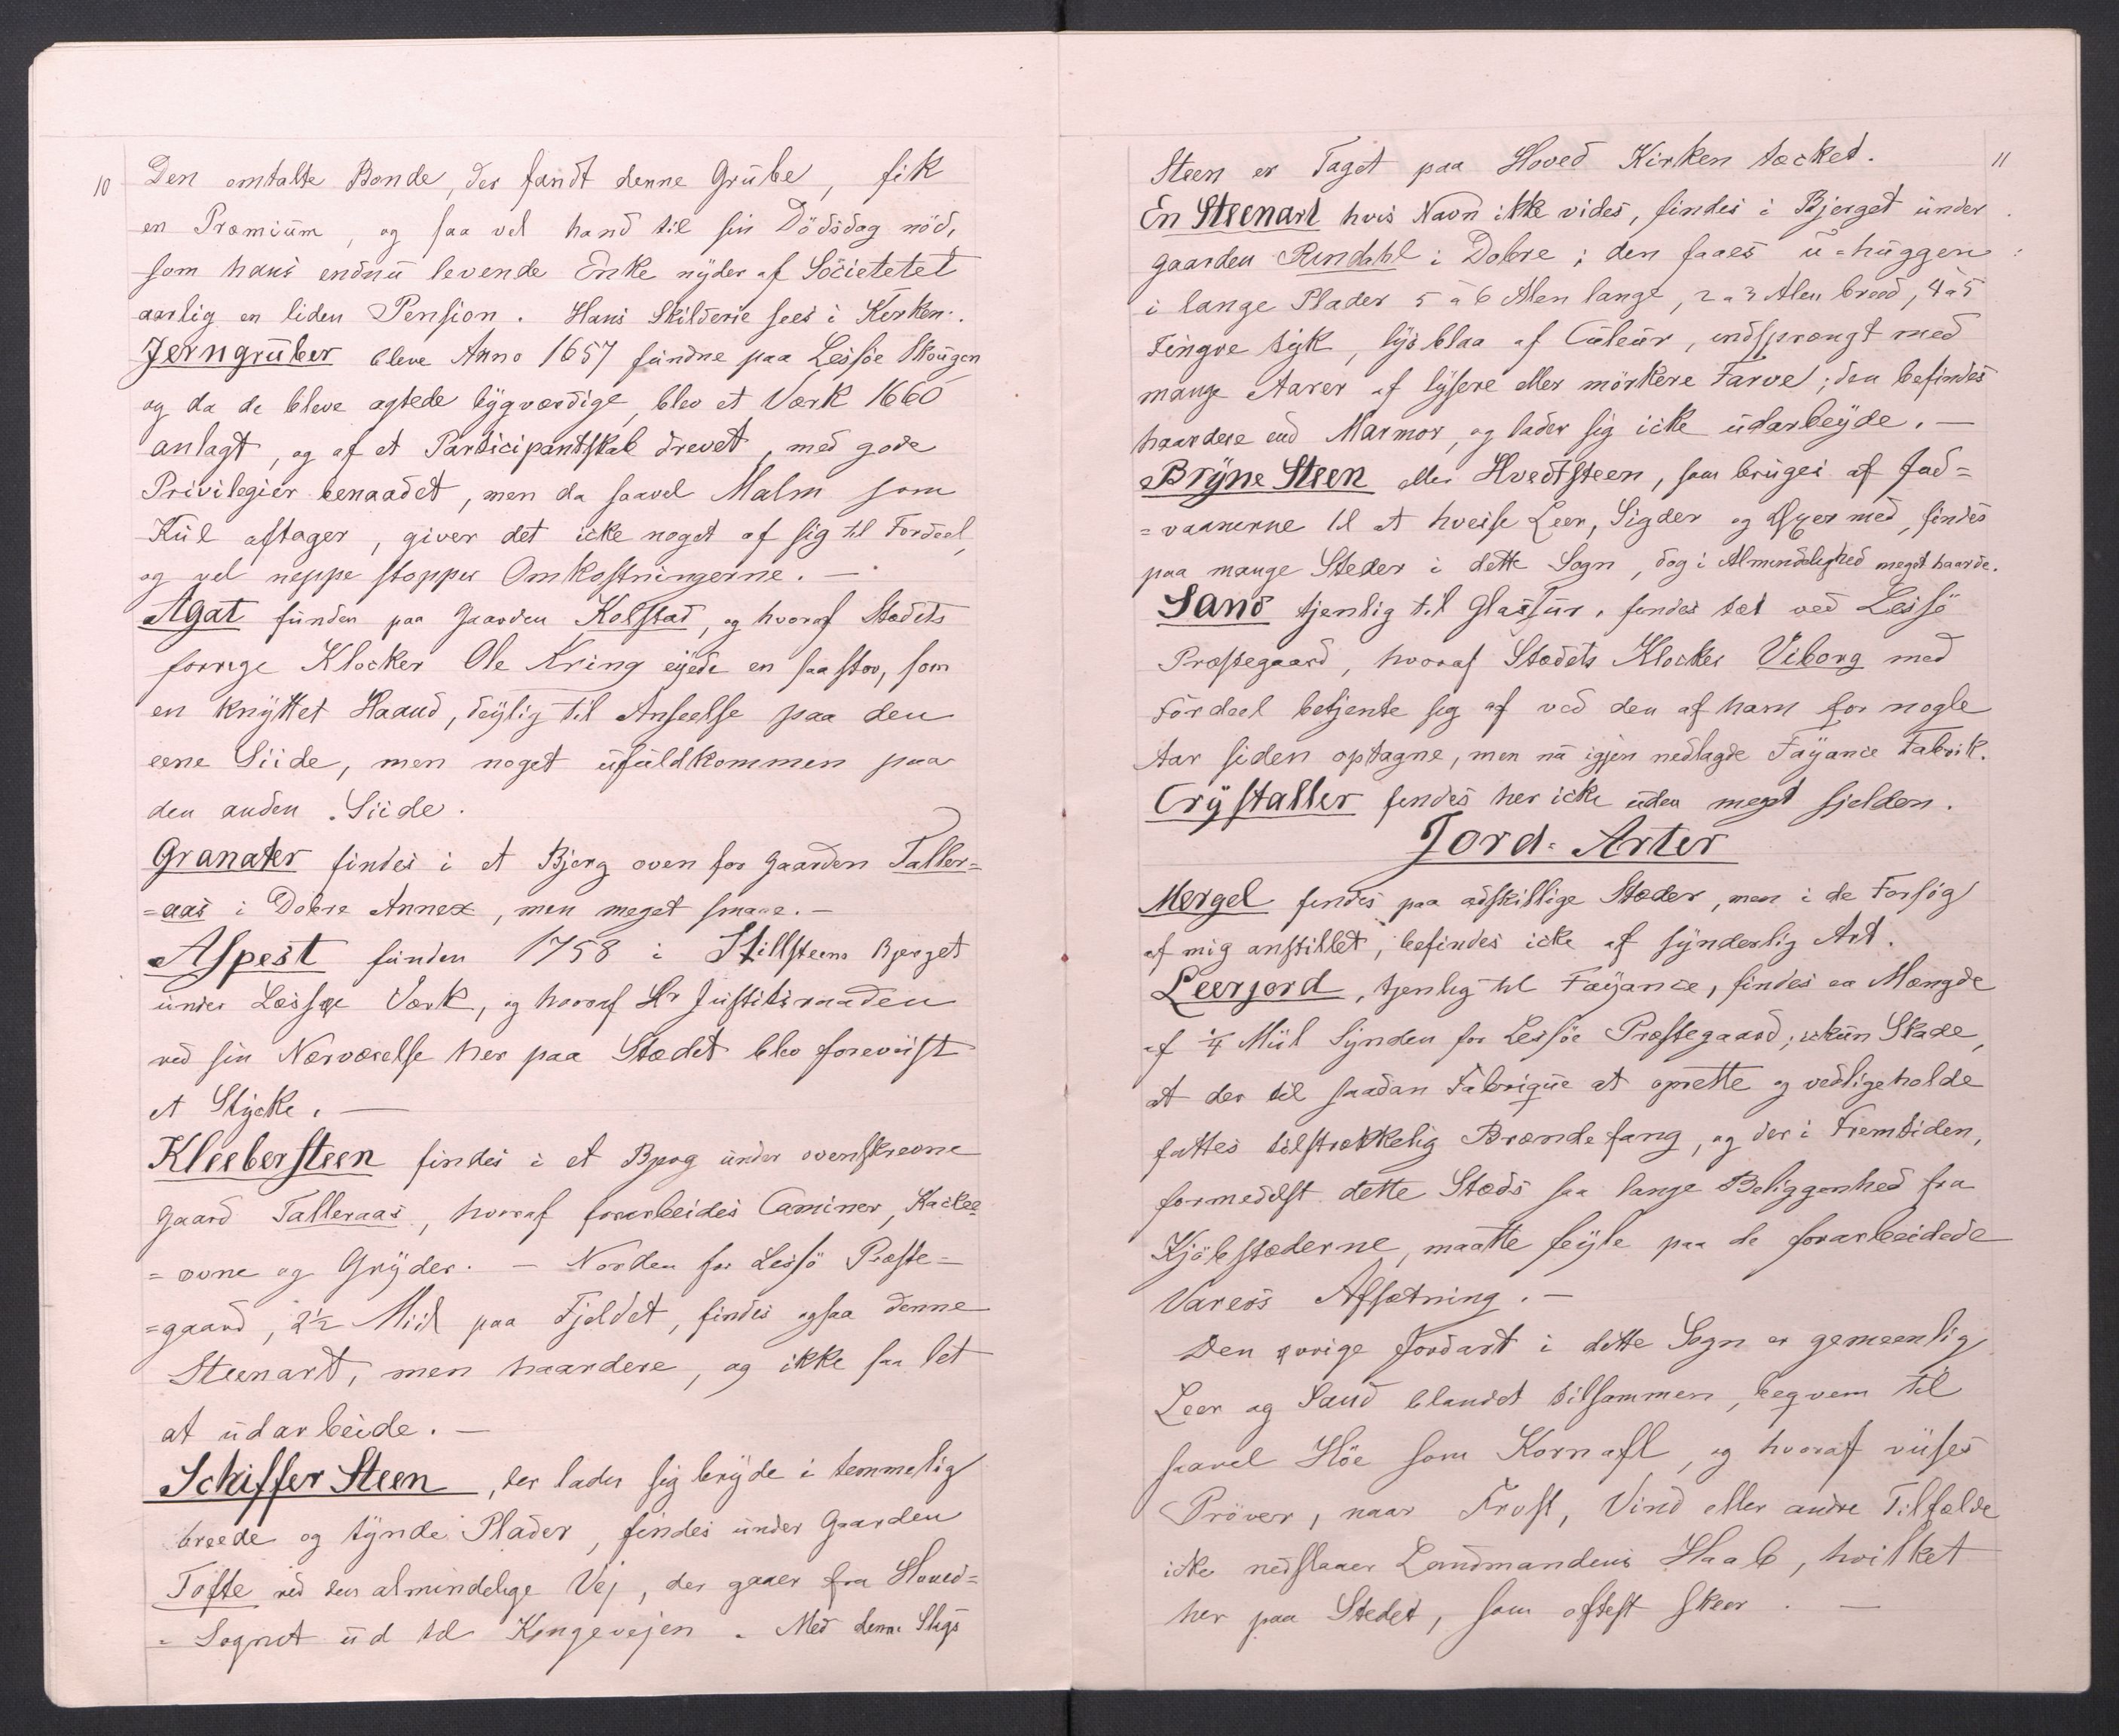 10
Den omtalte Bonde, der fandt denne Grube, fik
en Præmium, og saa vel hand til sin Dödsdag nöd,
som hans endnu levende Enke nyder af Societetet
aarlig en liden Pension. Hans Skilderie sees i Kirken.
Jerngruber bleve Anno 1657 fundne paa Lessøe Skougen
og da de bleve agtede bygværdige, blev et Værk 1660
anlagt, og af et Participantskab drevet, med gode
Privilegier benaadet, men da saavel Malm som
Kul aftager, giver det icke noget af sig til Fordeel,
og vel neppe stopper Omkostningerne. —
Agat funden paa Gaarden Kolstad, og hvoraf Stædets
forrige Klocker Ole Kring eyede en saa stor, som
en knyttet Haand, deylig til Anseelse paa den
eene Siide, men noget ufuldkommen paa
den anden Siide.
Granater findes i et Bjerg oven for Gaarden Taller=
=aas i Dobre Annex, men meget smaae. —
Aspest funden 1758 i Stillsteens Bjerget
under Læssøe Værk, og hvoraf Hr Justitsraaden
ved sin Nærværelse her paa Stædet blev foreviist
et Stycke. —
Kleebersteen findes i et Bjerg under ovenskrevne
Gaard Talleraas, hvoraf forarbeides Caminer, Kackel=
=ovne og Gryder. — Norden for Lessö Præste=
=gaard, 2½ Miil paa Fjeldet, findes ogsaa denne
Steenart, men haardere, og ikke saa let
at udarbeide. —
Schiffer Steen, der lader sig bryde i temmelig
breede og tynde Plader, findes under Gaarden
Tofte ved den almindelige Vej, der gaaer fra Hoved=
=Sognet ud til Kongevejen. Med denne Slags
11
Steen er Taget paa Hoved Kirken tæcket.
En Steenart hvis Navn ikke vides, findes i Bjerget under
gaarden Rindahl i Dobre; den faaes u=huggen
i lange Plader 5 à 6 Alen lange, 2 a 3 Alen breed, 4 à 5
Fingre tyk, lys blaa af Culeur, indsprængt med
mange Aarer af lysere eller mörkere Farve; den befindes
haardere end Marmor, og lader sig icke udarbeyde. —
Bryne Steen eller Hvedtsteen, som bruges af Ind=
=vaanerne til at hveise Leer, Sigder og Øxer med, findes
paa mange Steder i dette Sogn, dog i Almindelighed meget haarde.
Sand tjenlig til Glassur, findes tæt ved Lessö
Præstegaard, hvoraf Stædets Klocker Viborg med
Fordeel betjente sig af ved den af ham for nogle
Aar siden optagne, men nu igjen nedlagde Fayance Fabrik.
Crystaller findes her icke uden meget sjelden.
Jord-Arter
Mergel findes paa adskillige Stæder, men i de Forsög
af mig anstillet, befindes icke af synderlig Art.
Leerjord, tjenlig til Fayance, findes en Mængde
af ¼ Miil Synden for Lessöe Præstegaard; ickun Skade,
at der til saadan Fabrique at oprette og vedligeholde
fattes tilstrækkelig Brændefang, og der i Fremtiden,
formedelst dette Stæds saa lange Beliggenhed fra
Kjöbstæderne, maatte feyle paa de forarbeidede
Varers Afsætning. —
Den øvrige Jordart i dette Sogn er gemeenlig
Leer og Sand blandet tilsammen, beqvem til
saavel Höe som Kornafl, og hvoraf viises
Pröver, naar Frost, Vind eller andre Tilfælde
icke nedslaaer Landmandens Haab, hvilket
her paa Stedet, som oftest skeer. —